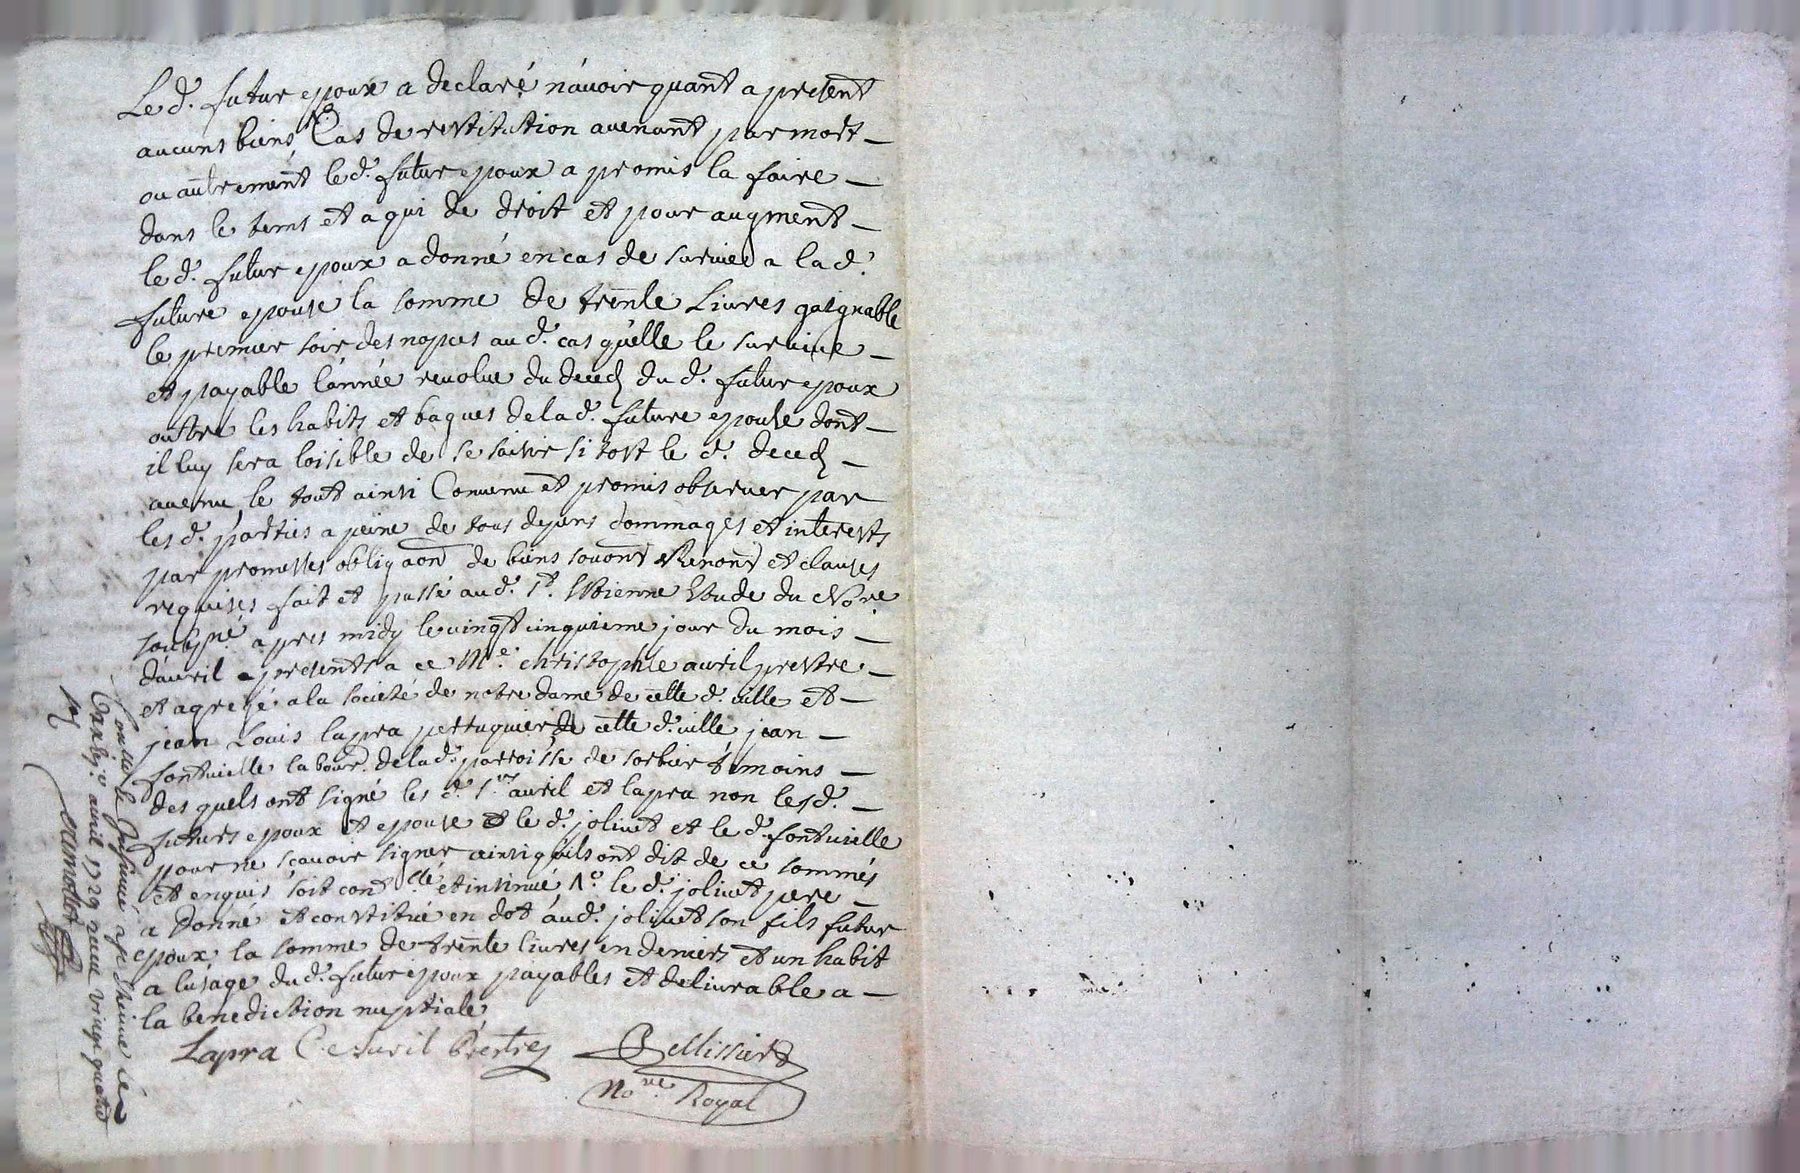 Le d. futur epoux a declaré n'avoir quant a present
aucuns biens Cas de restitution avenant par mort
ou autrement le d. futur epoux a promis la faire
dans le tems et a qui de droit et pour augment
le d. futur epoux a donné en cas de survie a la d.
future epouse la somme de trente Livres gaignable
le premier soir des nopces aud. cas qu'elle le survive
et payable l'année revolue du deced du d. futur epoux
outre les habits et bagues de la d. future epouse dont
il luy sera loisible de se saisir si tost le d. deced
avenu le tout ainsi Convenu et promis observer par
les d. parties a peine de tous depens dommages et interests
par promesses obligaon de biens et clauses
requises fait et passé aud. St. Etienne Etude du No.re
soubs.né apres midy le vingt cinquieme jour du mois
d'avril presents a ce M.e christophle avril prestre
et agregé a la societé de notre dame de cette d. ville et
jean Louis lapra perruquier de cette d. ville jean
fontvielle labour. de la d. parroisse de sorbier temoins
des quels ont signé les d. s.rs avril et lapra non les d.
futurs epoux et epouse et le d. jolivet et le d. fontvielle
pour ne scavoir signer ainsi quils ont dit de ce sommés
et enquis soit cont.llé et insinué Ne. le d. jolivet pere
a donné et constitué en dot aud. jolivet son fils futur
epoux la somme de trente livres en deniers et un habit
a lusage du d. futur epoux payables et delivrable a
la benediction nuptiale
Lapra C. Avril Prestre Pellissier
No.re Royal
Controllé Insinué a St Etienne le
avril 1729 receu vingt quatre